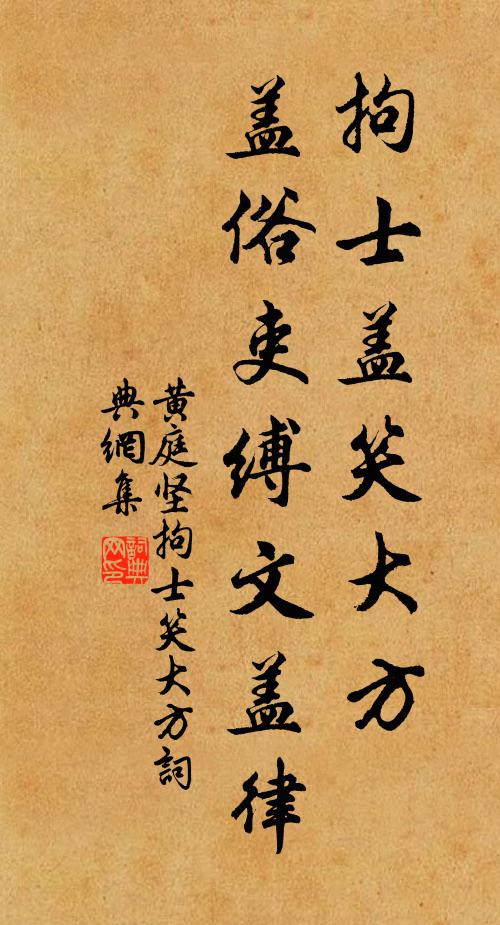 拘士盖笑大方
盖俗吏缚文盖律
黄庭坚拘士笑大方詞
典網集
詞典网印